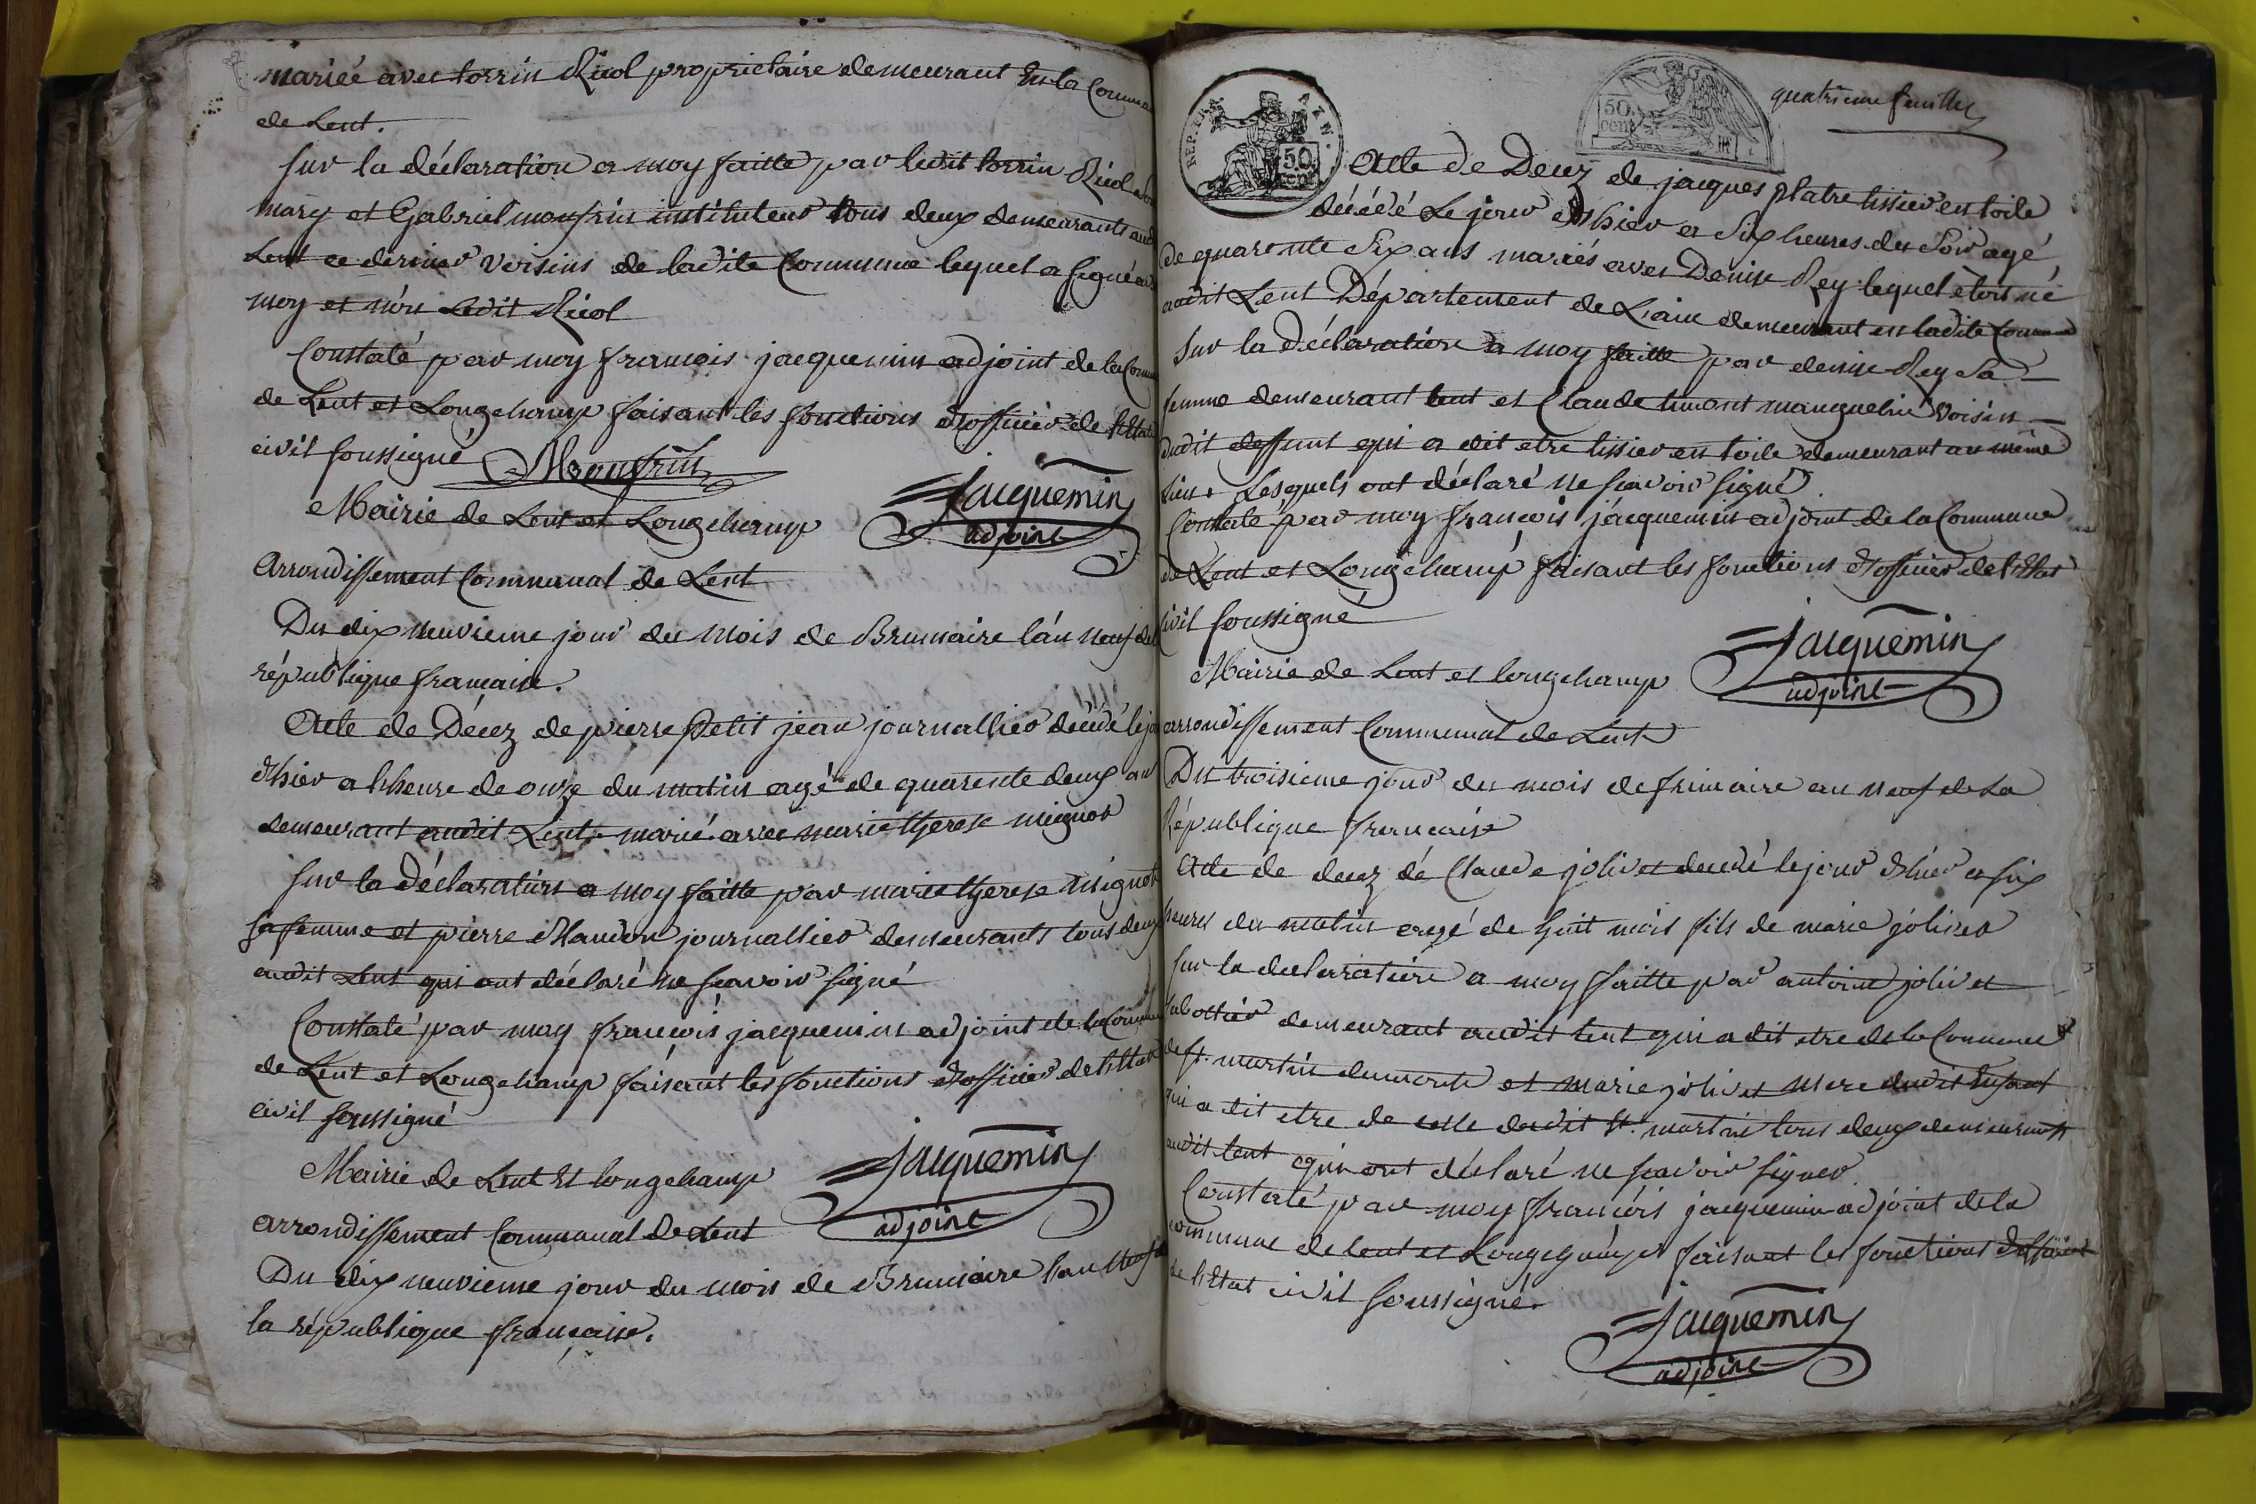 mariée avec torrin Ricol proprietaire demeurant En la Commune
de Lent.
Sur la déclaration a moy faitte par ledit torrin Ricol
mary et Gabriel monfrin instituteur tous deux demeurants aud
Lent ce dernier voisins de ladite Commune lequel a signé avec
moy et non Ledit Ricol
Constaté par moy francois jacquemin adjoint de la Commune
de Lent et Longchamp faisant les fonctions d'officier de l'Etat
civil soussigné Monfrin
Jacquemin
adjoint
Mairie de Lent et Longchamp
Arrondissement Communal de Lent
Du dix neuvieme jour du mois de Brumaire l'an neuf de la
république francaise.
Acte de Décez de pierre Petit jean journallier décédé le jour
d'hier a l'heure de onze du matin agé de quarente deux ans
demeurant audit Lent marié avec marie therese mignot
Sur la déclaration a moy faitte par marie therese mignot
sa femme et pierre journallier demeurants tous deux
audit Lent qui ont déclaré ne scavoir signé
Constaté par moy francois jacquemin adjoint de la Commune
de Lent et Longchamp faisant les fonctions d'officier de l'Etat
civil soussigné
Jacquemin
adjoint
Mairie de Lent Et longchamp
arrondissement Communal de Lent
Du dix neuvieme jour du mois de Brumaire l'an neuf de
la république française.
REP. FRA.
50
cent
50.
cent
quatrieme feuille
Acte de Décez de jacques platre tissier en toile
décédé Le jour d'hier a six heures du Soir agé
de quarente Six ans mariés avec Denise Rey lequel étoit né
audit Lent Département de L'ain demeurant en ladite Commune
Sur la Déclaration a moy faitte par denise Rey Sa
femme demeurant lent et Claude voisin
dudit deffunt qui a dit etre tissier en toile demeurant au même
lieu. Lesquels ont déclaré ne scavoir signé
Constaté par moy francois jacquemin adjoint de la Commune
de Lent et Longchamp faisant les fonctions d'officier de l'Etat
civil soussigné
Jacquemin
adjoint
Mairie de Lent et longchamp
arrondissement Communal de Lent
Du troisieme jour du mois de frimaire an neuf de La
République francaise
Acte de decez de Claude jolivet decedé le jour d'hier a six
heures du matin agé de huit mois fils de marie jolivet
Sur la declaration a moy faitte par antoine jolivet
sabottier demeurant audit lent qui a dit etre de la Commune
de st. martin dumonte et marie jolivet mere dudit Enfant
qui a dit etre de celle dudit st. martin tous deux demeurants
audit lent qui ont déclaré ne scavoir signer
Constaté par moy francois jacquemin adjoint de la
commune de lent et Longchamp faisant les fonctions d'officier
de l'Etat civil soussigné.
Jacquemin
adjoint